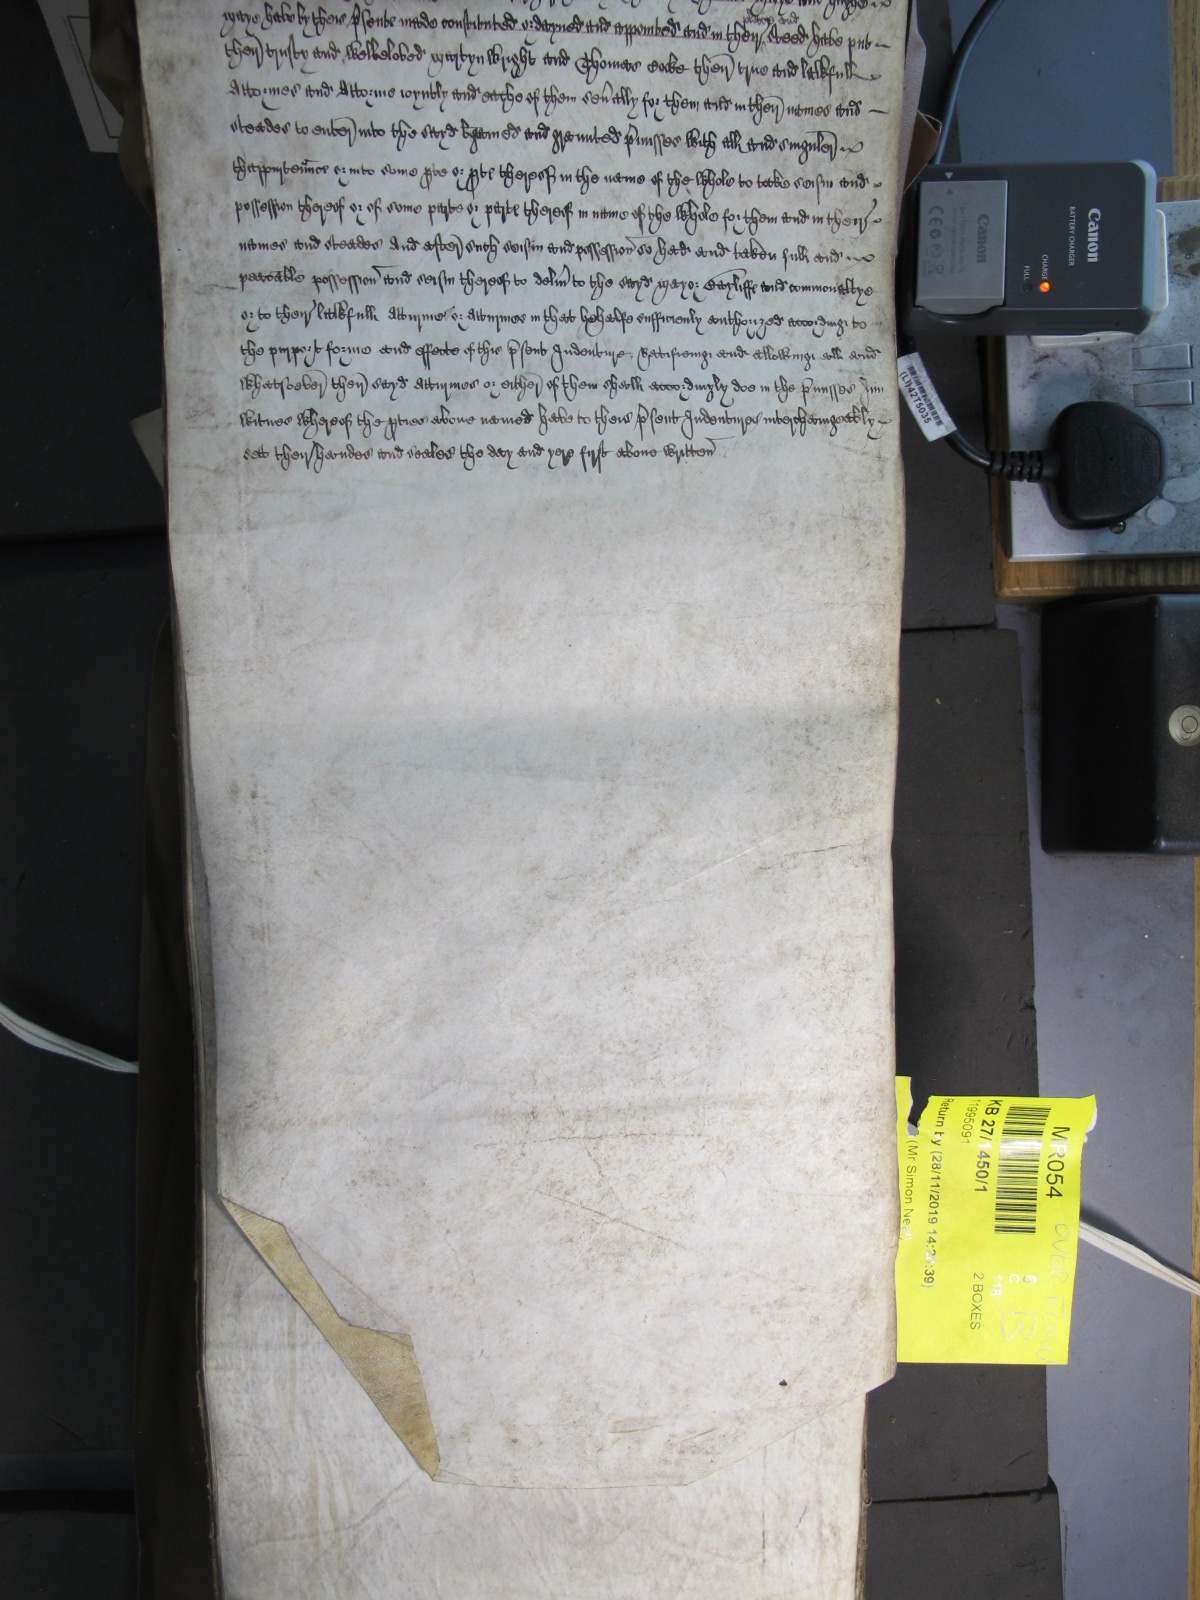 mayo r have by theis p'sente made constituted ordayned and appointed and in their steed have put
place and
their trusty and welbeloved Martyn Wright and Thomas Cocke their true and laufull
Attornes and Attorne ioyntly and eache of them sev'ally for them and in their names and
steades to enter into the sayd bargained and graunted p'misses with all and singuler
thappurten'nce or into some p'te or p'cell thereof in the name of the whole to take seisin and
possession thereof or of some parte or p'cell thereof in name of the whole for them and in their
names and steades And after such seisin and possession so had and taken full and
peaceable possession and seisin thereof to deliu' to the sayd mayor Bayliffe and commonaltye
or to their laufull Atturne or atturnes in that behalfe sufficiently authorized according to
the purport forme and effecte of this p'sent Indenture, Ratifieing and allowing all and
whatsoever their sayd Atturnes or either of them shall accordingly doe in the p'misses In
witnes whereof the p'ties above named have to theis p'sent Indentures interchaungeably
set their handes and seales the day and yere first above written
Canon
BATTERY CHARGER
CHARGE
FULL
Canon
(L)N42T5035
MR054
KB 27/1450/1
11995091
Return by (28/11/2019 14:20:39)
(Mr Simon Neal)
2 BOXES